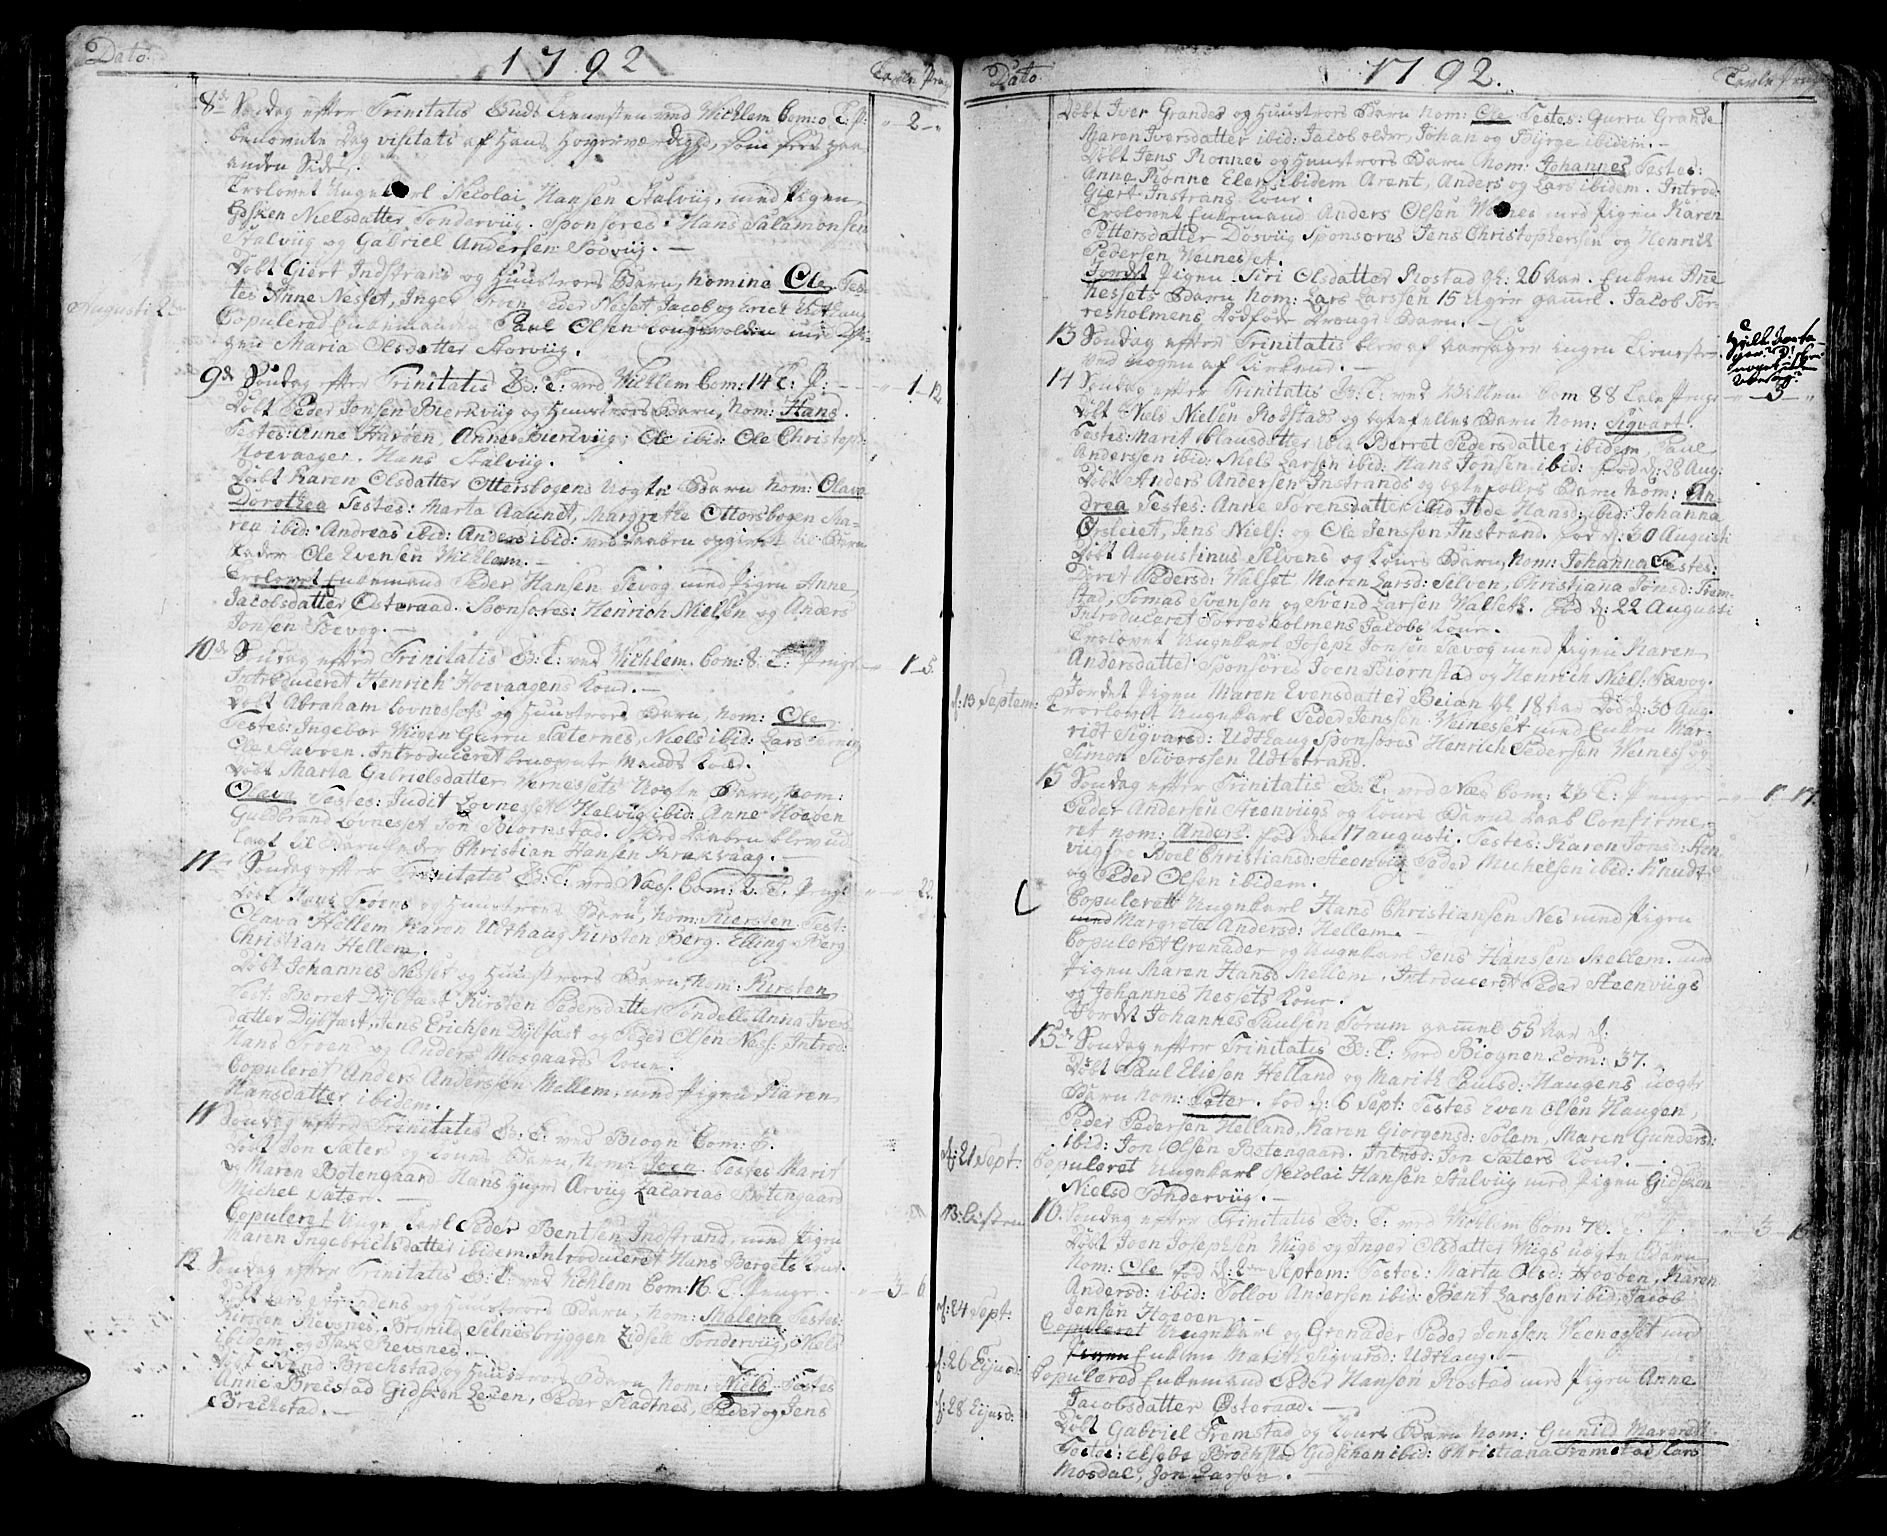 Dato. 1792 Tavle Penge
8de Søndag efter Trinitatis Guds Tienesten ved Wichlem Com: 0 T: P: " 2 "
benevnte Dag visitats af Hans Høyærværdighed, som sees paa
anden Side.
Trolovet Ungekarl Nicolai Hansen Stalviig, med Pigen
Gidsken Nielsdatter Tønderviig. Sponsores: Hans Salamonsen
Stalviig og Gabriel Andersen Sødviig. —
Døbt Giert Indstrand og Huustroes Barn, nomine Ole. Tes-
tes Anne Nesset, Inger Peder Nesset, Jacob og Erich Udthaug
Augusti 2den Copulered Enkemanden Paul Olsen med Pi-
gen Maria Olsdatter Storviig.
9de Søndag efter Trinitatis G: T: ved Wichlem Com: 14 T: P: — " 1 12
Døbt Peder Jonsen Bierkviig og Huustroes Barn, Nom: Hans.
Testes: Anne Harøen, Anne Bierkviig, Ole ibid: Ole Christoph:
Hoevaager. Hans Stalviig.
Døbt Karen Olsdatter Ottersbogens uægte Barn Nom: Olava
Dorothea Testes: Marta Aaunet, Margrethe Ottersbogen Ma-
rea ibid: Andreas ibid: Anders ibid: ved Daaben opgivet til Barne
Fader Ole Evensen Wichlem. —
Trolovet Enkemand Peder Hansen Tevog med Pigen Anne
Jacobsdatter Østeraad. Sponsores: Henrich Nielsen og Anders
Jonsen Tævog. —
10de Søndag efter Trinitatis G: T: ved Wichlem. Com: 8. T: Penge " 1 5.
Introduceret Henrich Hoevaagens Kone. —
Døbt Abraham Lovnessets og Huustroes Barn, Nom: Ole.
Testes: Ingebor Wiiden Gurru Sæternes, Niels ibid: Lars
Ole Stavven. Introduceret benævnte Mands Kone.
Døbt Marta Gabrielsdatter Vernessets Uægte Barn, Nom:
Olava Testes: Judit Lovnesset Helvig ibid: Anne Hoøen
Guldbrand Lovnesset Jon Biornstad. Ved Daaben blev ud
lagt til Barnefader Christian Hansen Krakvaag. —
11te Søndag efter Trinitatis G: T: ved Næss. Com: T: Penge " " 22.
Døbt Hans Trøens og Huustroes Barn, Nom: Kiersten. Test:
Olava Hellem Karen Udthaug Kirsten Berg. Elling Berg
Christian Hellem.
Døbt Johannes Nesset og Huustroes Barn, Nom: Kirsten
Test: Berret Dÿbfæst Kirsten Pedersdatter Tøndell Anna Ivers
datter Dÿbfast, Jens Erichsen Dÿbfast og Peder Olsen Næss: Introd:
Hans Trøen og Anders Mosgaards Kone.
Copuleret Anders Andersen Mellem, med Pigen Karen
Hansdatter ibidem.
11 Søndag efter Trinitatis G: T: ved Biogn Com: 5.
Døbt Jon Sæter og Kones Barn, Nom: Joen. Testes Marit
og Maren Botengaard Hans Arviig Zacarias Botengaard
Michel Sæter. —
Copuleret Unge Karl Peder Bentsen Indstrand, med Pigen
Maren Ingebrictsdatter ibidem. Introduceret Hans Bergets Kone.
12. Søndag efter Trinitatis G: T: ved Wichlem Com: 16. T: Penge. " 3 6
Døbt Lars og Huustroes Barn, Nom: Malena Testes:
Kirsten Revsnes, Selnesbryggen Zidsele Tønderviig Niels
ibidem, og Revsnes. —
Døbt Svend Brechstad og Huustroes Barn, Nom: Niels. Testes
Anne Brecstad Gidsken Leien, Peder Stadtnes, Peder og Jens
Brechstad. —
Dato. 1792. Tavle Penge
Døbt Iver Grandes og Huustroes Barn Nom: Ole Testes: Gurru Grande
Maren Iversdatter ibid: Jacob older, Johan og Byrge ibidem. —
Døbt Jens Rønnes og Huustroes Barn Nom: Johannes Testes:
Anne Rønne Elen ibidem Arent, Anders og Lars ibidem. Introd:
Giert Instrans Kone.
Trolovet Enkemand Anders Olsen med Pigen Karen
Pettersdatter Døsviig Sponsores Jens Christophersen og Henrich
Pedersen Veinesset.
Jordet Pigen Siri Olsdatter Rostad gl: 26 Aar. Enken Anne
Nessets Barn Nom: Lars Larssen 15 Uger gaml. Jacob Tor-
resholmens Dødføde Drenge Barn. —
13 Søndag efter Trinitatis blev af aarsager ingen Tienesten
ved nogen af Kirkene. —
14 Søndag efter Trinitatis G: T: ved Wichlem Com 88 Tavle Penge " 3 "
Døbt Nels Nielsen Rostads og ægtefelles Barn Nom: Sigvart.
Testes: Marit Clausdatter ibid Berret Pedersdatter ibidem, Paul
Anderssen ibid: Niels Larsen ibid: Hans Jonsen ibid: fød d: 28 Aug:
Døbt Anders Andersen Instrands og ægtefelles Barn Nom: An-
drea Testes: Anne Sørensdatter ibid Hansd: ibid: Johanna
Ørsleiet, Jens Niels: og Ole Jenssen Instrand. fød d: 30 Augusti
Døbt Augustinus Selvens og Kones Barn, Nom: Johanna Testes:
Døret Pedersd: Walset Maren Larsd: Selven, Christiana Jonsd: Frem-
stad, Tomas Svensen og Svend Larsen Walseth. fød d: 22 Augusti
Introduceret Torresholmens Jacobs Kone.
Trolovet Ungekarl Joseph Jonsen Tævog med Pigen Maren
Andersdatter Sponsores Joen Biornstad og Henrich Niels: Tævog.
Jordet Pigen Maren Evensdatter Beian gl 18 Aar Død d: 30 Aug.
d: 13 Septem: Trolovet Ungekarl Peder Jenssen Veinesset med Enken Mar-
ridt Sigvarsd: Udthaug Sponsores Henrich Pedersen Veiness og
Simon Sivorssen Udtstrand.
15 Søndag efter Trinitatis G: T: ved Næs Com: 23 T: Penge " 1 17
Peder Andersen Steenviigs og Kones Barns Daab Confirme-
ret nom: Anders. fød den 17 augusti. Testes: Karen Jonsd:
Boel Christiansd: Steenviig Peder Michelsen ibid: Knudt
og Peder Olsen ibidem.
Copuleret Ungekarl Hans Christiansen Nes med Pigen
Margrete Andersd: Hellem. —
Copuleret Grenader og Ungekarl Jens Hanssen Mellem. med
Pigen Maren Hansd Mellem. Introduceret Peder Steenviigs
og Johannes Nessets Kone.
Jordet Johannes Paulsen Forum gamel 55 Aar d.
15de Søndag efter Trinitatis G: T: ved Biognen Com: 37.
Døbt Paul Eliesen Helland og Marith Paulsd: Haugens uægte
Barn Nom: Peter. fød d: 6 Sept: Testes Even Olsen Haugen,
Peder Pedersen Helland, Karen Giorgensd: Solem, Maren Gundersd:
ibid: Jon Olsen Botengaard. Introd: Jon Sæters Kone. —
d: 21 Sept: Copuleret Ungekarl Nicolai Hansen Stalviig med Pigen Gidsken
Nielsd Tønderviig. —
16. Søndag efter Trinitatis G: T: ved Wichlem Com 70. " 3
Døbt Joen Josephsen Wiigs og Inger Olsdatter Wiigs uægte Barn
Nom: Ole fød d: 2den Septem: Testes: Marta Olsd: Hoøen, Maren
Andersd: ibid: Tollov Andersen ibid: Bent Larssen ibid, Jacob
Jonsen Hoøen —
d: 24 Sept: Copuleret Ungekarl og Grenader Peder Jonssen Veenesset med
Pigen Enken Marith Sigvarsd: Udthaug. —
d: 26 Ejusd: Copulered Enkemand Peder Hanson Rostad med Pigen Anne
Jacobsdatter Østeraad. —
d: 28 Ejusd: Døbt Gabriel Fremstad og Kones Barn Nom: Gunild Margreth
Testes: Elsebe Brechstad Gidschen ibid: Christiana Fremstad Lars
Mosdal, Jon Larsen. —